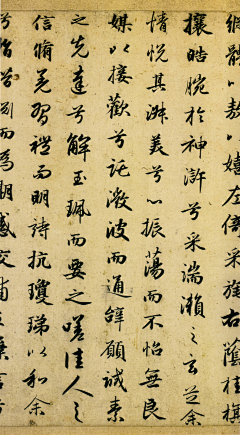 體以敖以嬉左倚采旄右蔭桂旗
攘皓腕於神滸兮采湍瀨之玄芝余
情悅其淑美兮心振蕩而不怡無良
媒以接歡兮託微波而通辭願誠素
之先達兮解玉珮而要之嗟佳人之
信脩羌習禮而明詩抗瓊珶以和余
而為期感交甫棄言